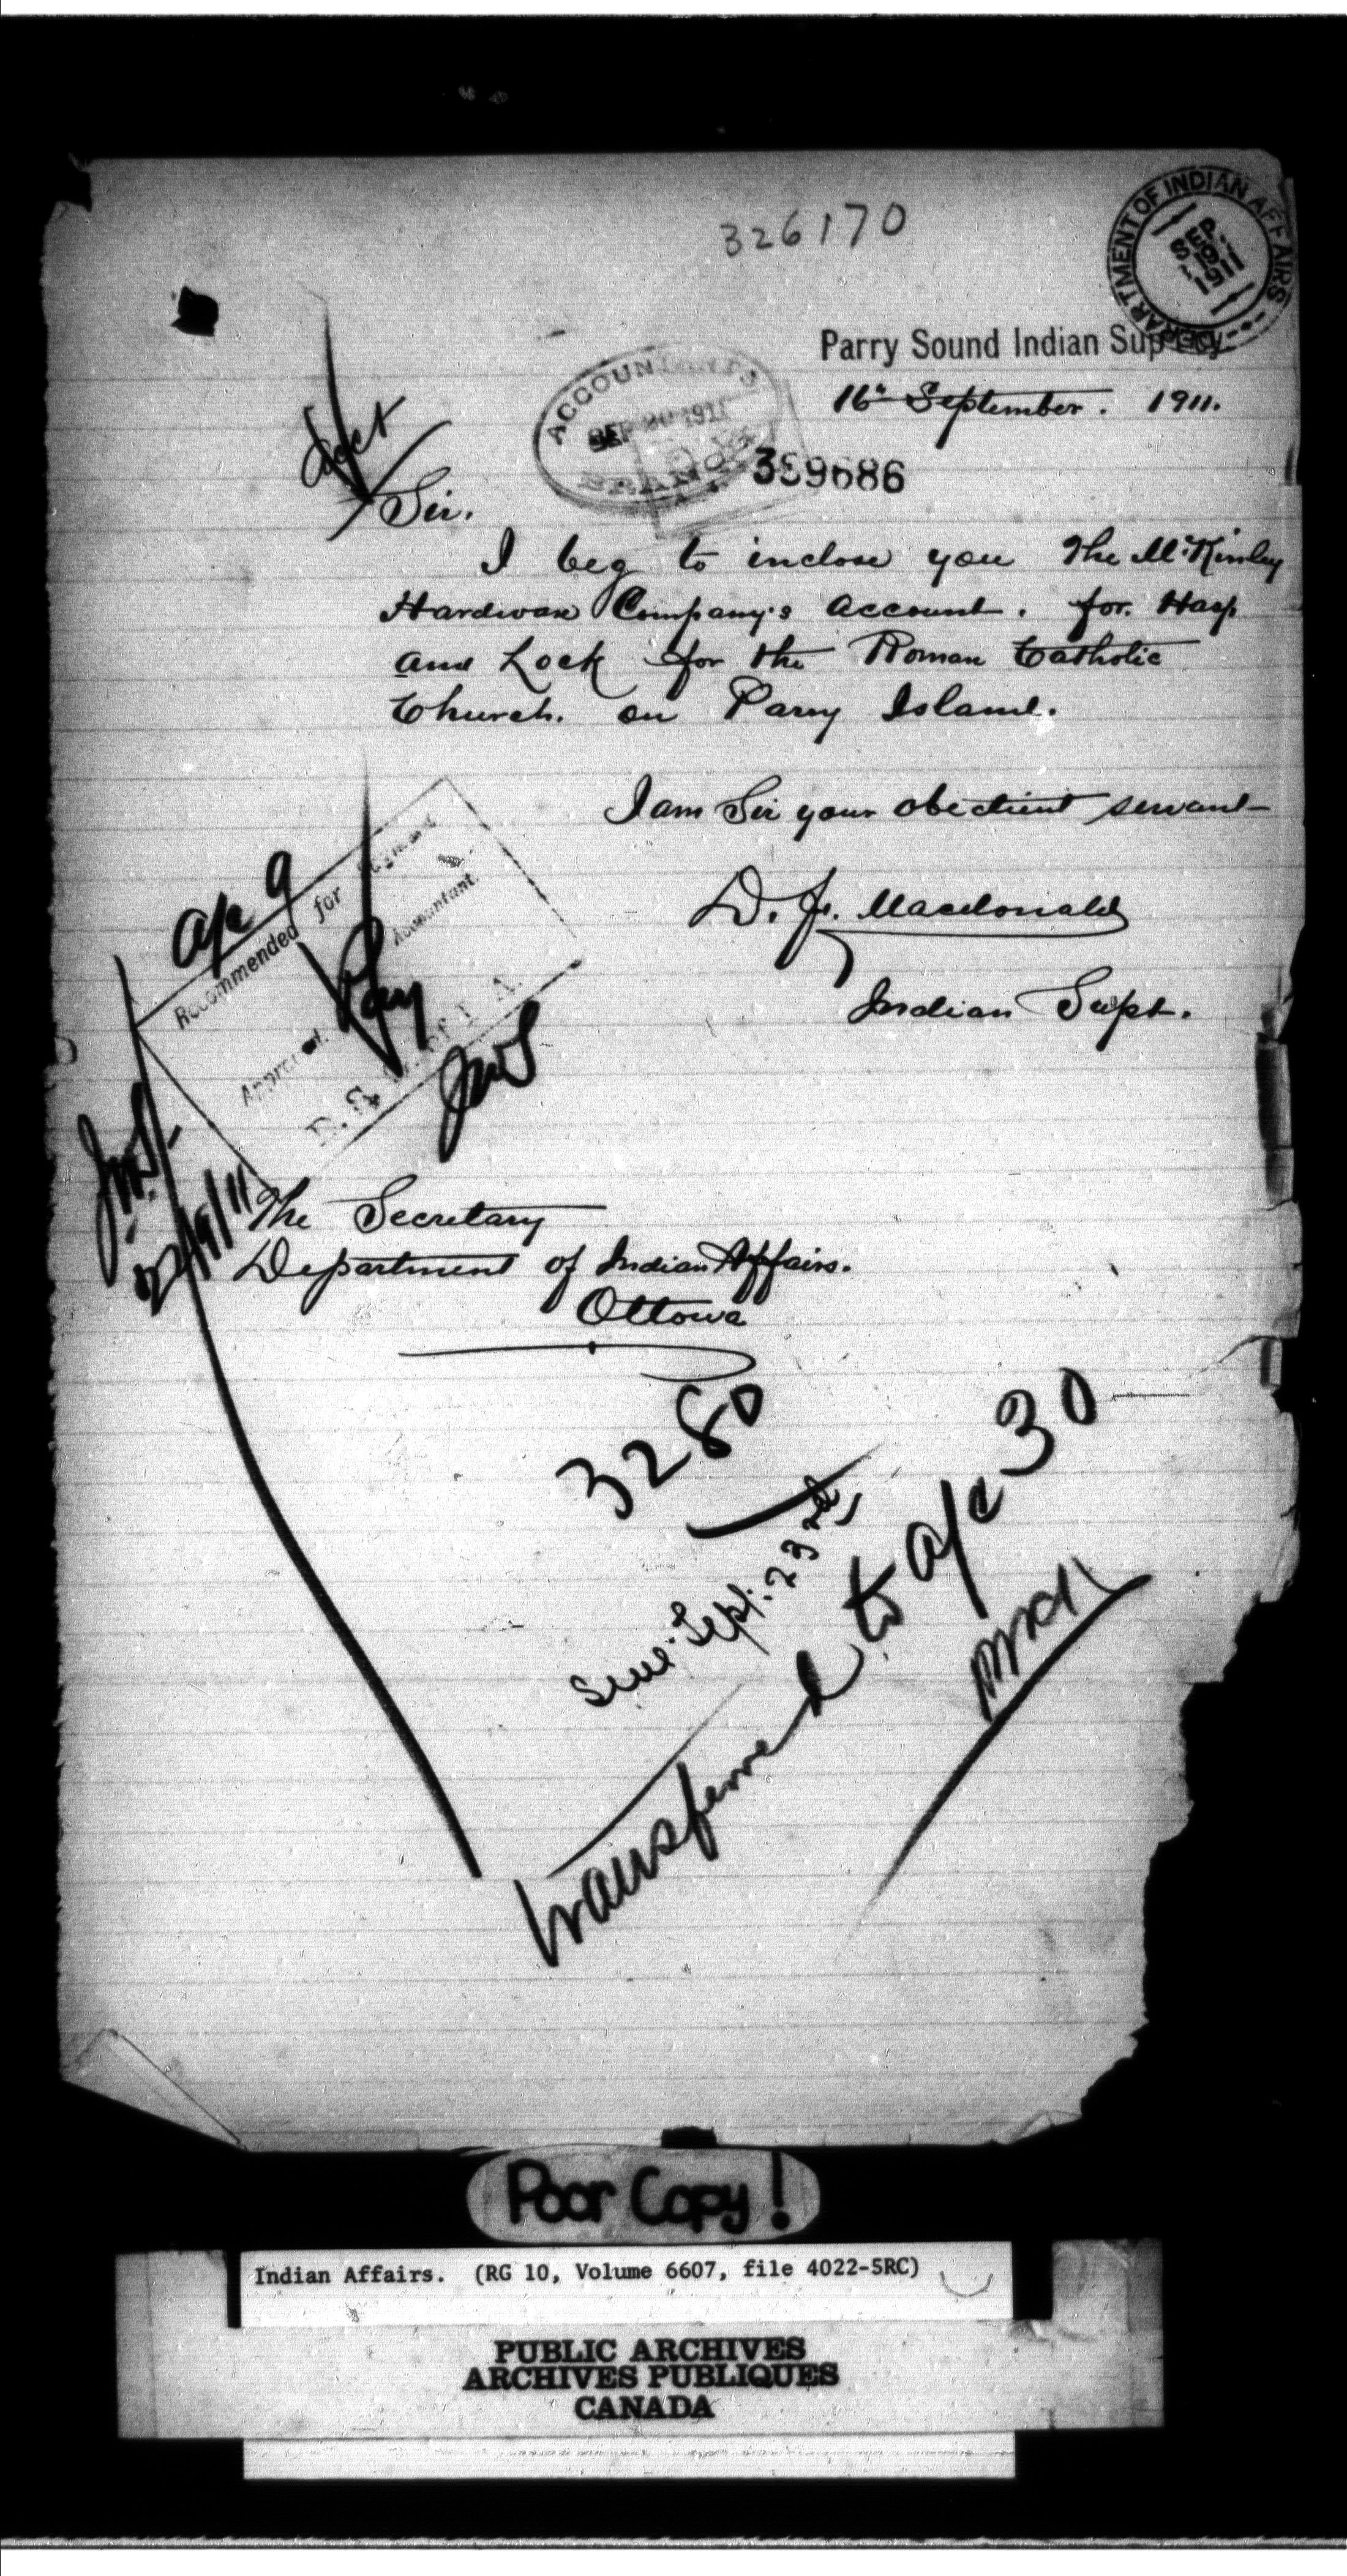 326170
DEPARTMENT OF INDIAN AFFAIRS
SEP
1911
Parry Sound Indian Sup
16th September. 1911.
ACCOUNTANTS
SEP 20 1911
BRANCH
339686
Acct
Sir.
I beg to inclose you The McKinley
Hardware Company's account. for. Hasp
and Lock for the Roman Catholic
Church. on Parry Island.
I am Sir your obedient servant
D. F. Macdonald
Indian Supt.
a/c 9
Recommended for Payment
Accountant.
Approved.
Pay
JWS
22/9/11
The Secretary
Department of Indian Affairs.
Ottawa
3280
Sept. 23rd
transferred to a/c 30
Poor Copy!
Indian Affairs. (RG 10, Volume 6607, file 4022-5RC)
PUBLIC ARCHIVES
ARCHIVES PUBLIQUES
CANADA